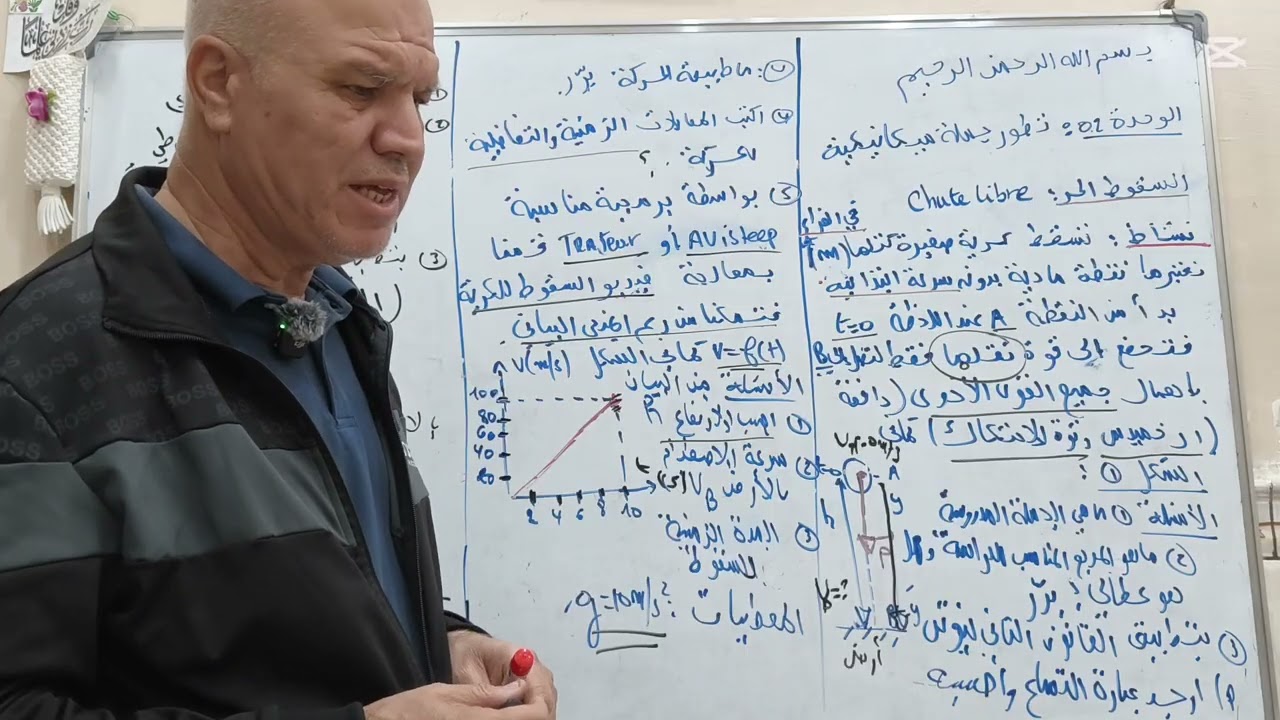 بسم الله الرحمن الرحيم
الوحدة 02: تطور جملة ميكانيكية
السقوط الحر: Chute libre
في الفراغ
نشاط: نسقط كرية صغيرة كتلتها (m)
نعتبرها نقطة مادية بدون سرعة ابتدائية
بدأ من النقطة A عند اللحظة t=0
فتخضع إلى قوة ثقلها فقط لتصل إلى B
باهمال جميع القوى الأخرى (دافعة
ارخميدس وقوة الاحتكاك) كمافي
الشكل ①:
الأسئلة ① ماهي الجملة المدروسة
② ماهو المرجع المناسب للدراسة وهل
هو عطالي؟ برّر
③ بتطبيق القانون الثاني لنيوتن
أوجد عبارة التسارع و
t=0
A
h
y
P
أرض
: ماطبيعة الحركة برّر.
④ اكتب المعادلات الزمنية والتفاضلية
للحركة .؟
⑤ بواسطة برمجية مناسبة
AVisteep أو TRAteur قمنا
بمعالجة فيديو السقوط للكرية
فتمكنا من رسم المنحنى البياني
v=f(t) كمافي الشكل
الأسئلة من البيان
① احسب الارتفاع h
② سرعة الاصطدام
بالأرض VB
③ المدة الزمنية
للسقوط
المعطيات: g=10m/s²
V(m/s)
100
80
60
40
20
2 4 6 8 10
(s)
BOSS
BOSS
BOSS